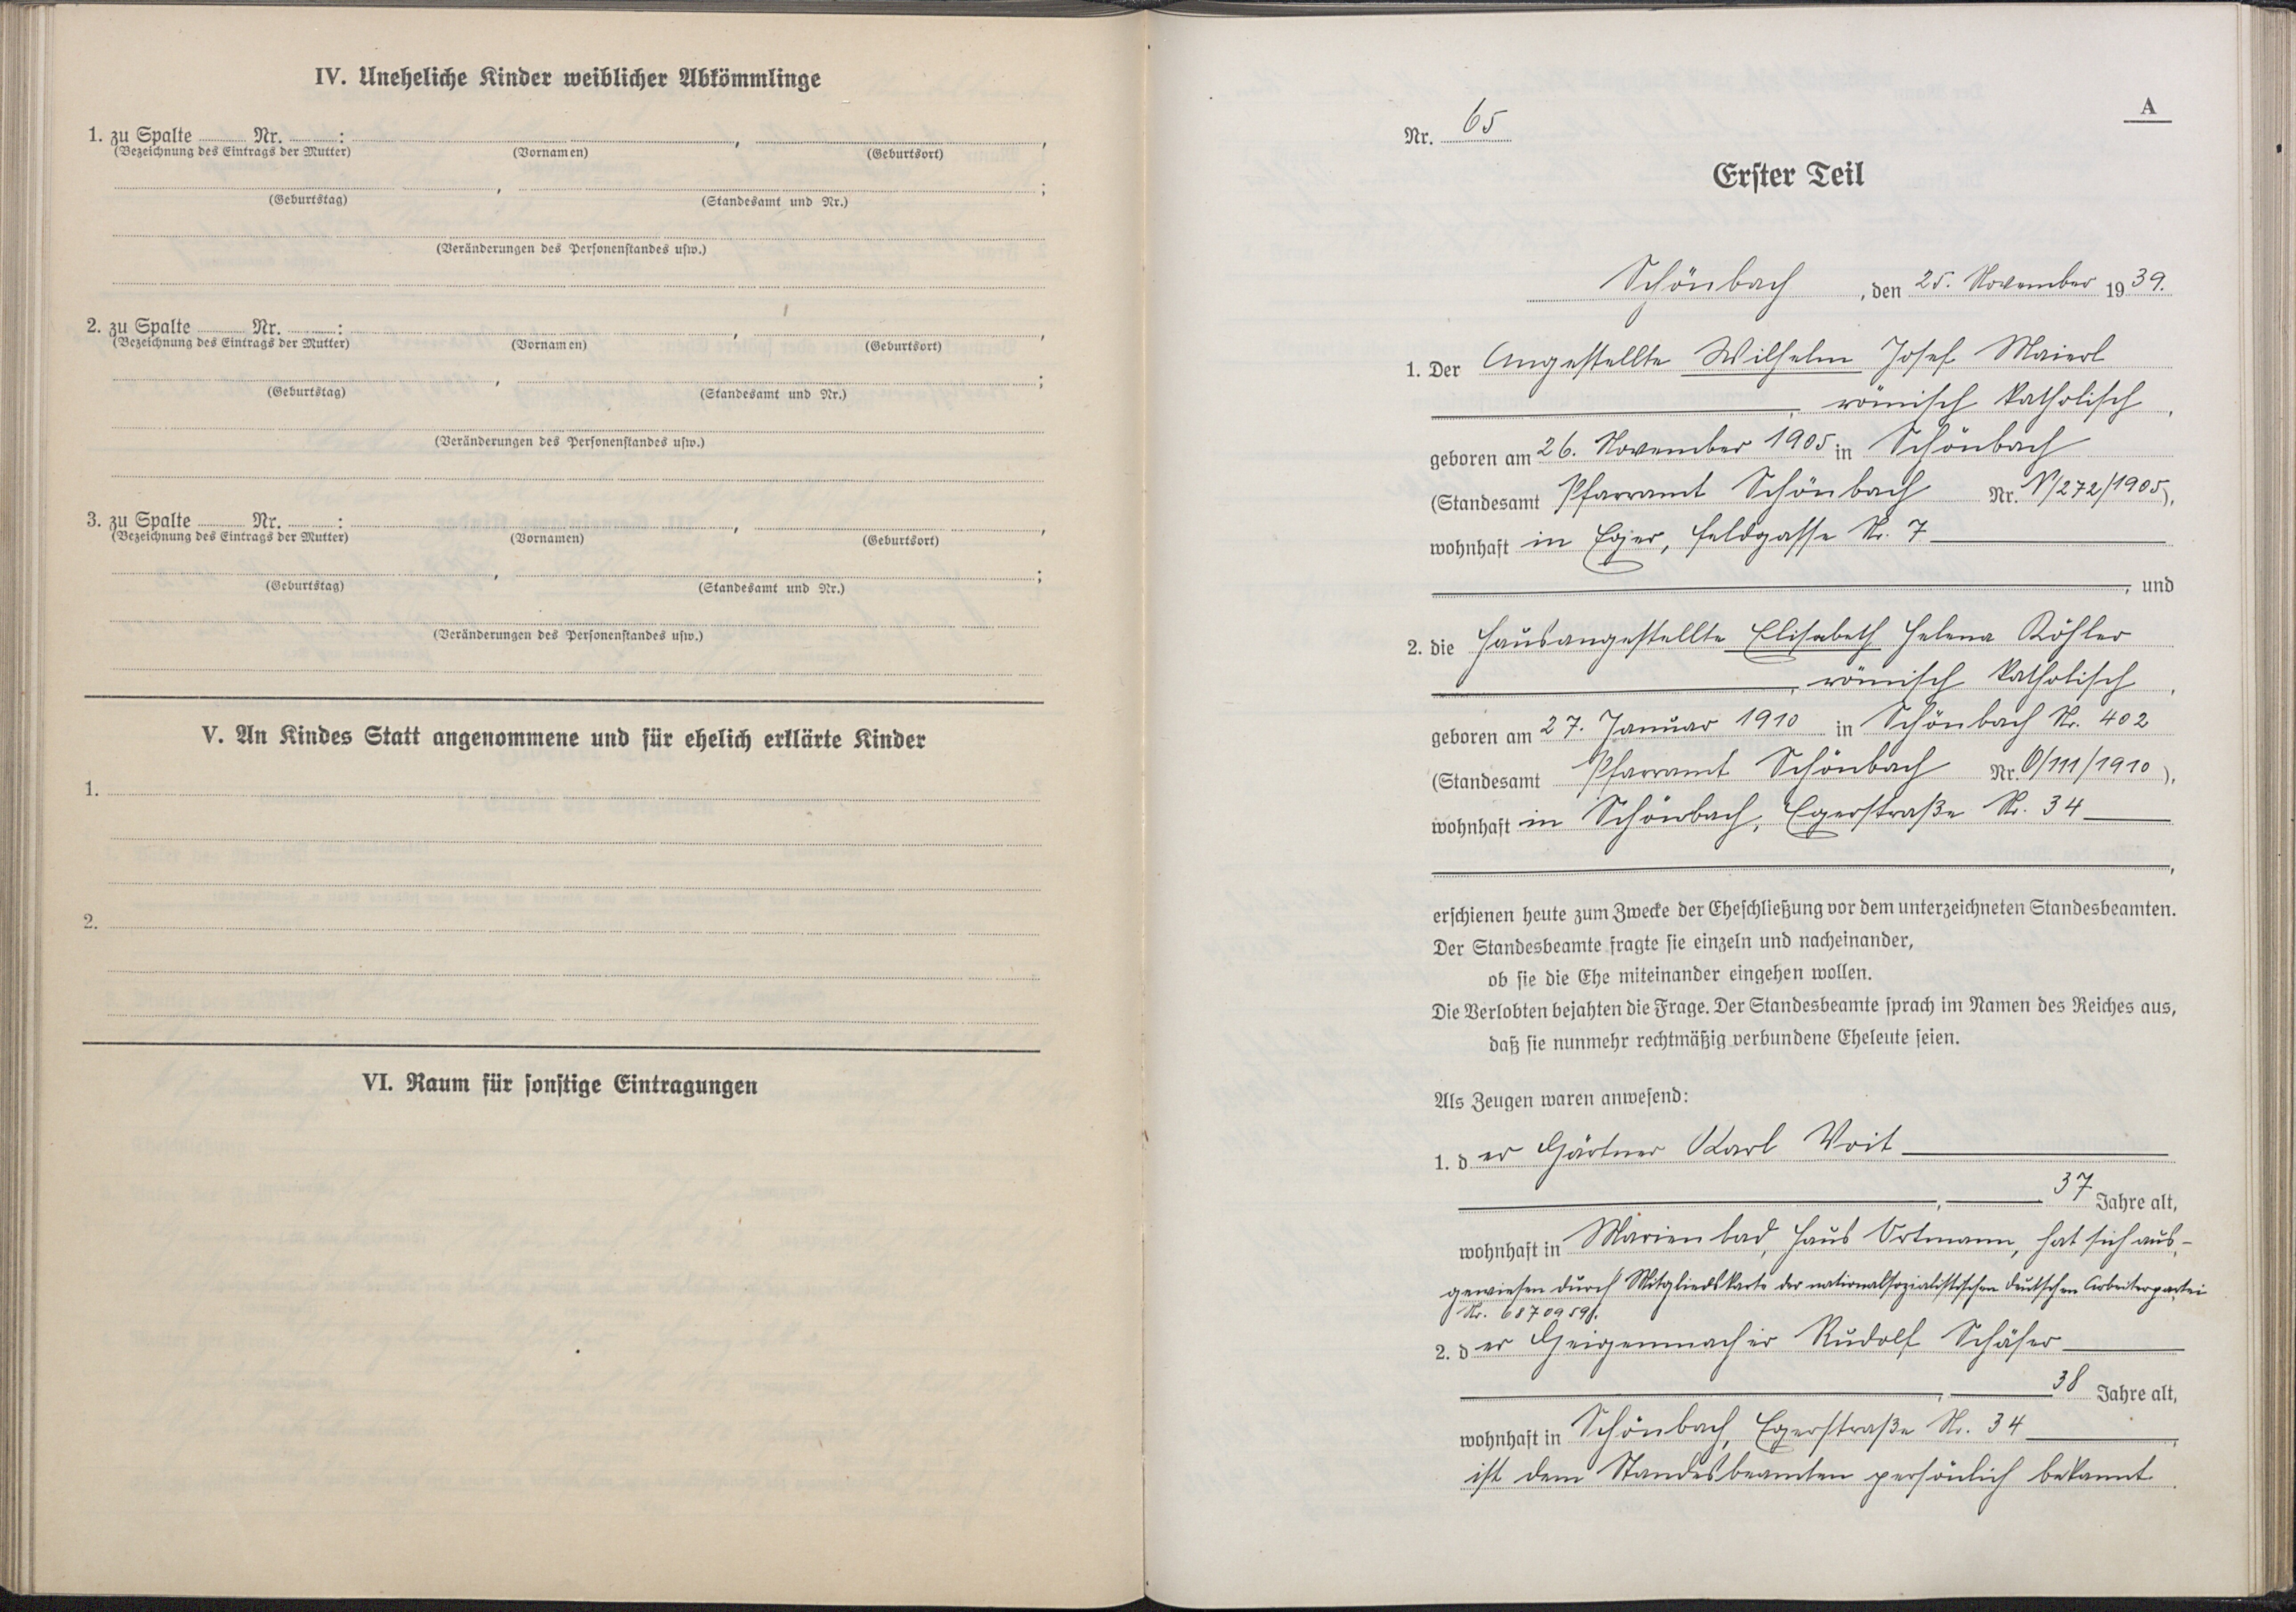 IV. Uneheliche Kinder weiblicher Abkömmlinge
1. zu Spalte Nr. : , ,
(Bezeichnung des Eintrags der Mutter) (Vornamen) (Geburtsort)
, ;
(Geburtstag) (Standesamt und Nr.)
(Veränderungen des Personenstandes usw.)
2. zu Spalte Nr. : , ,
(Bezeichnung des Eintrags der Mutter) (Vornamen) (Geburtsort)
, ;
(Geburtstag) (Standesamt und Nr.)
(Veränderungen des Personenstandes usw.)
3. zu Spalte Nr. : , ,
(Bezeichnung des Eintrags der Mutter) (Vornamen) (Geburtsort)
, ;
(Geburtstag) (Standesamt und Nr.)
(Veränderungen des Personenstandes usw.)
V. An Kindes Statt angenommene und für ehelich erklärte Kinder
1.
2.
VI. Raum für sonstige Eintragungen
A
Nr. 65
Erster Teil
Schönbach, den 25. November 1939.
1. Der Angestellte Wilhelm Josef Maierl
, römisch katholisch,
geboren am 26. November 1905 in Schönbach
(Standesamt Pfarramt Schönbach Nr. N/272/1905),
wohnhaft in Eger, Feldgasse Nr. 7
, und
2. die Hausangestellte Elisabeth Helena Köhler
, römisch katholisch,
geboren am 27. Januar 1910 in Schönbach Nr. 402
(Standesamt Pfarramt Schönbach Nr. O/111/1910),
wohnhaft in Schönbach, Egerstraße Nr. 34
,
erschienen heute zum Zwecke der Eheschließung vor dem unterzeichneten Standesbeamten.
Der Standesbeamte fragte sie einzeln und nacheinander,
ob sie die Ehe miteinander eingehen wollen.
Die Verlobten bejahten die Frage. Der Standesbeamte sprach im Namen des Reiches aus,
daß sie nunmehr rechtmäßig verbundene Eheleute seien.
Als Zeugen waren anwesend:
1. der Gärtner Karl Voit
, 37 Jahre alt,
wohnhaft in Marienbad, Haus Ortmann, hat sich aus-
gewiesen durch Mitgliedskarte der nationalsozialistischen deutschen Arbeiterpartei
Nr. 6870959.
2. der Geigenmacher Rudolf Schäfer
, 38 Jahre alt,
wohnhaft in Schönbach, Egerstraße Nr. 34,
ist dem Standesbeamten persönlich bekannt.